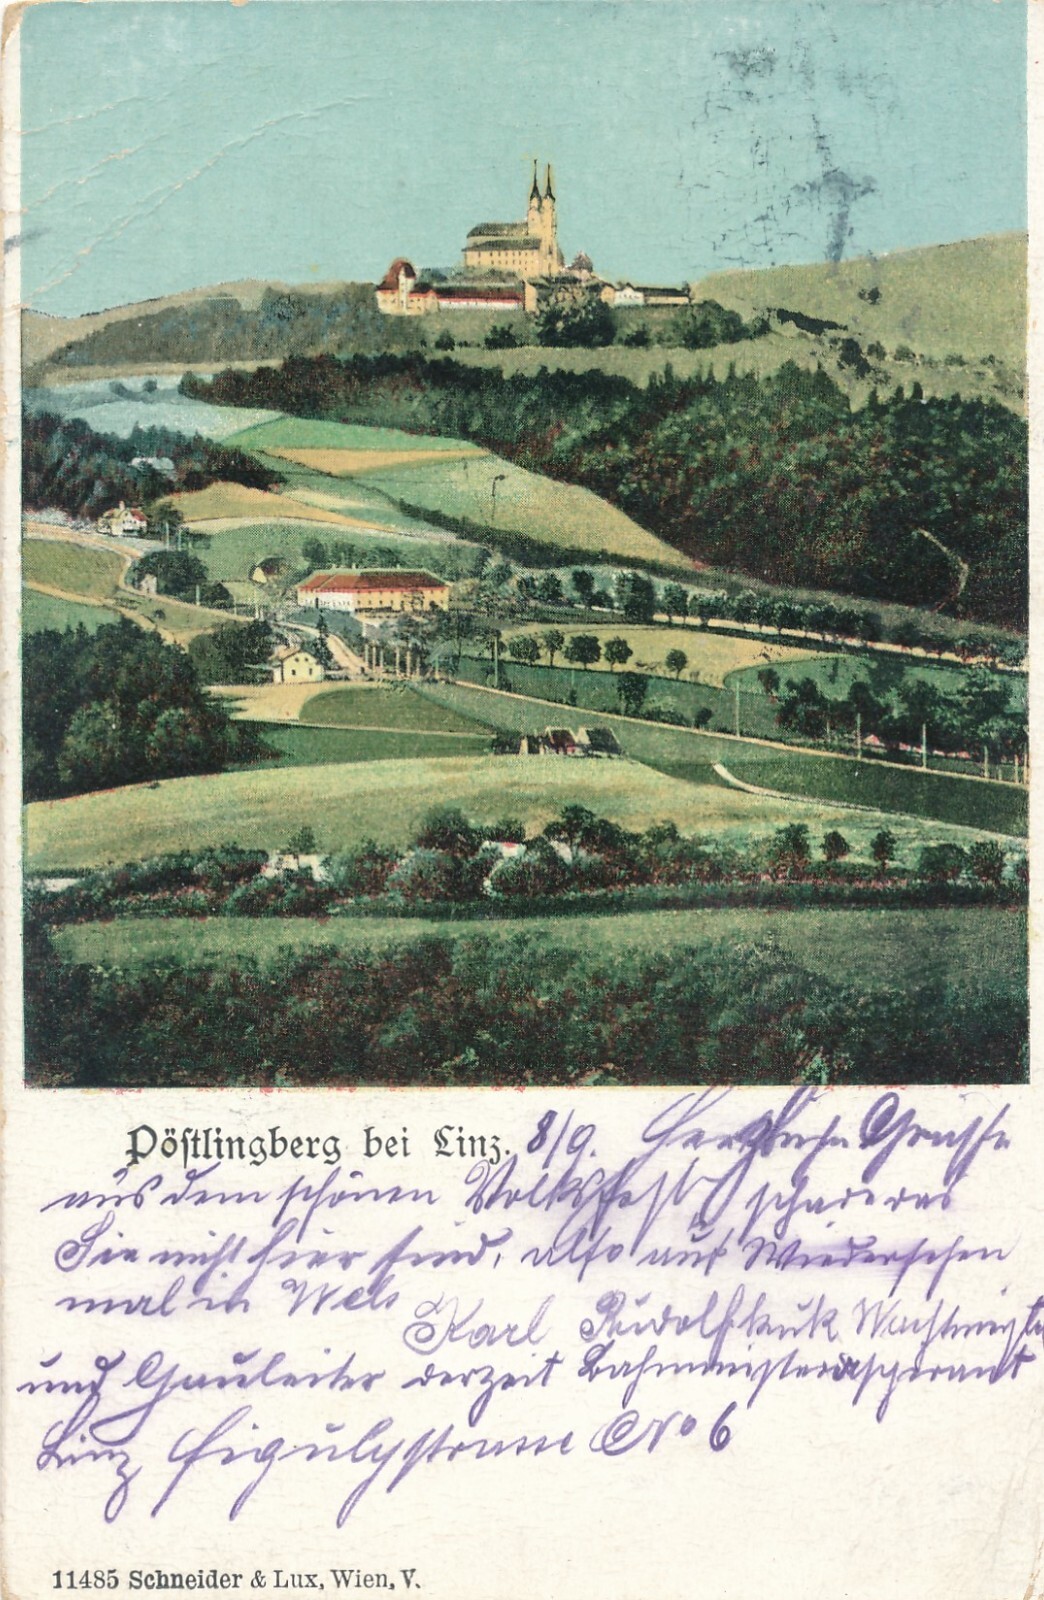 Pöstlingberg bei Linz. 8/9. Herzliche Grüsse
aus dem schönen Volksfest, schade das
Sie nicht hier sind, also auf Wiedersehen
mal in Wels
Karl Rudolf Wachtmeister
und derzeit
Linz No 6
11485 Schneider & Lux, Wien, V.